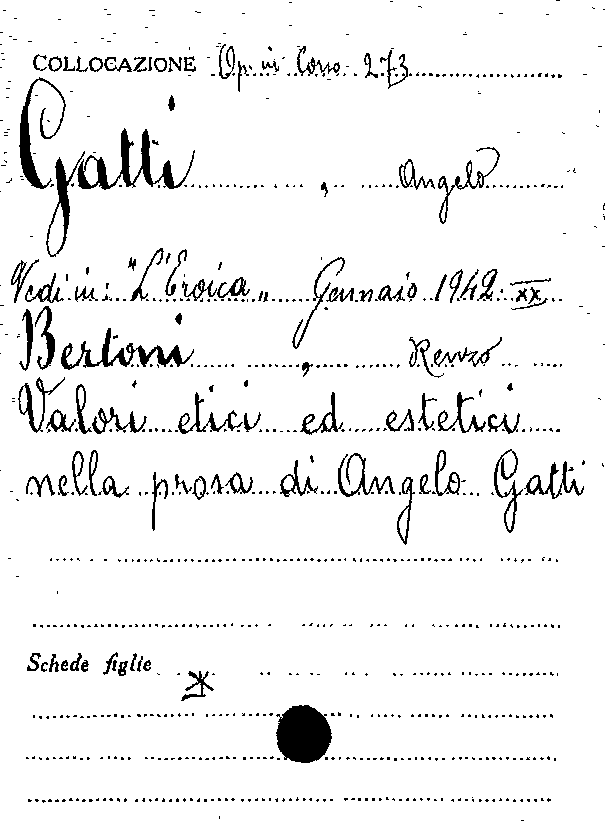 COLLOCAZIONE Op. in Corso 273
Gatti, Angelo
Vedi in: "L'Eroica„ Gennaio 1942. XX
Bertoni, Renzo
Valori etici ed estetici
nella prosa di Angelo Gatti
Schede figlie